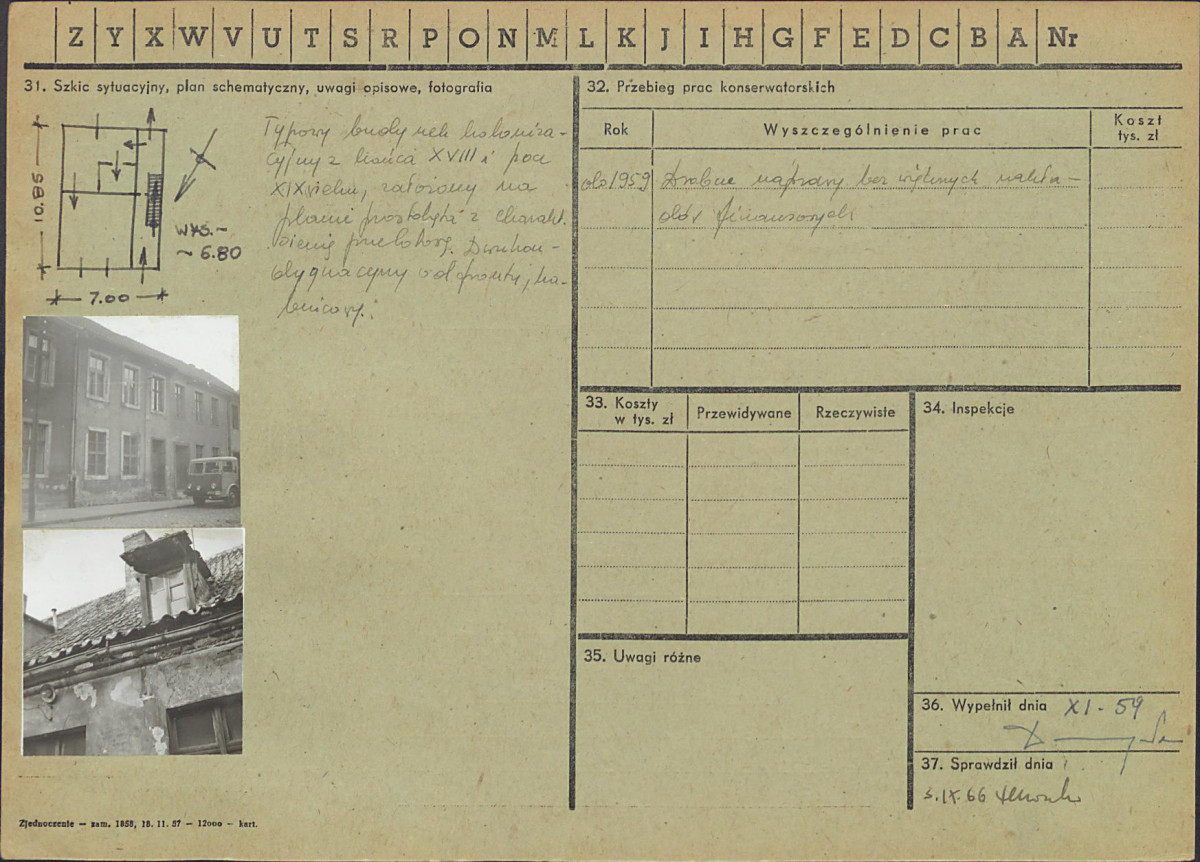 Z Y X W V U T S R P O N M L K J I H G F E D C B A Nr
31. Szkic sytuacyjny, plan schematyczny, uwagi opisowe, fotografia
10.85
WYS. -
~ 6.80
7.00
Typowy budynek koloniza-
cyjny z końca XVIII i pocz
XIX wieku, założony na
planie prostokąta z charakt.
sienią przelotową.
od frontu, ka-
lenicowy.
32. Przebieg prac konserwatorskich
Rok
Wyszczególnienie prac
Koszt
tys. zł
do 1959
Drobne naprawy bez większych nakła-
dów finansowych
33. Koszty
w tys. zł
Przewidywane
Rzeczywiste
34. Inspekcje
35. Uwagi różne
36. Wypełnił dnia XI - 59
37. Sprawdził dnia
3.IX.66
Zjednoczenie — zam. 1858, 18. 11. 57 — 12000 — kart.